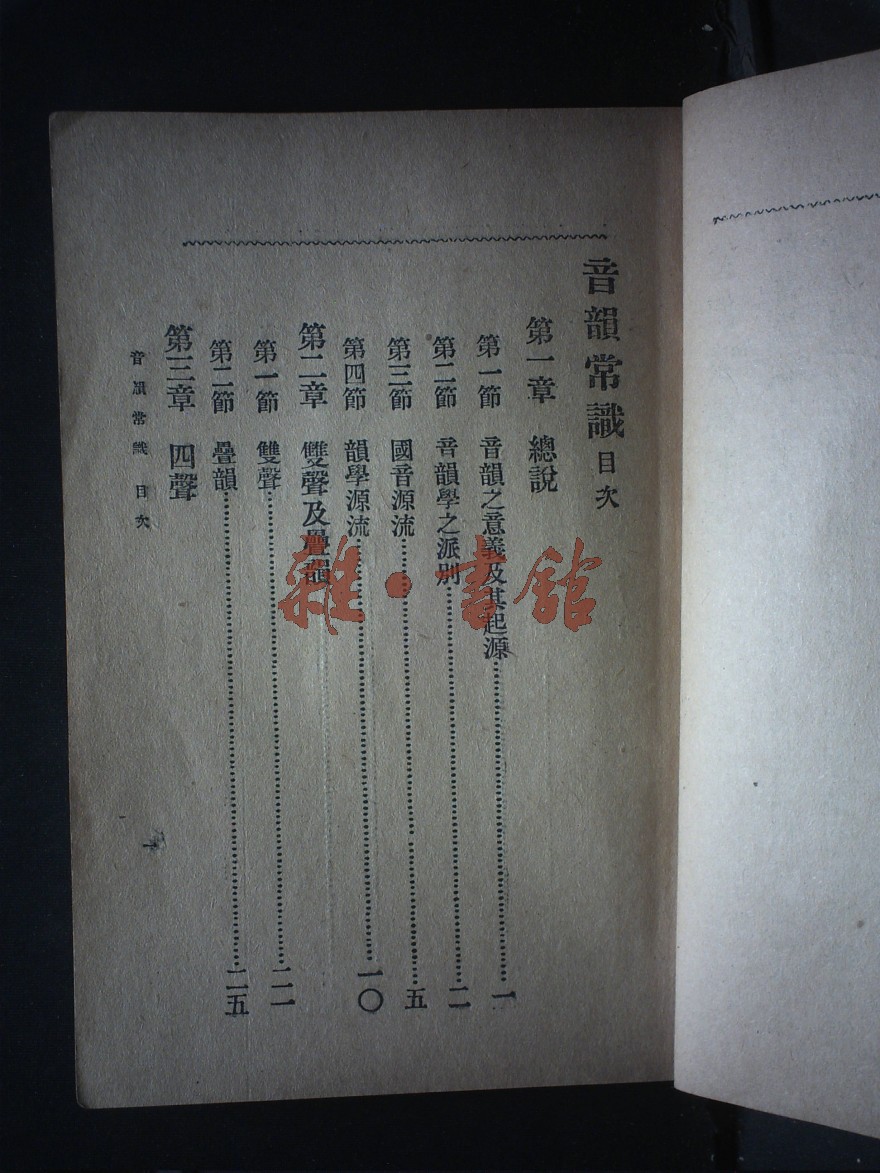 音韻常識目次
第一章 總說
第一節 音韻之意義及其起源……一
第二節 音韻學之派別……二
第三節 國音源流……五
第四節 韻學源流……一〇
第二章 雙聲及疊韻
第一節 雙聲……二一
第二節 疊韻……二五
第三章 四聲
音韻常識 目次
一
雜·書館